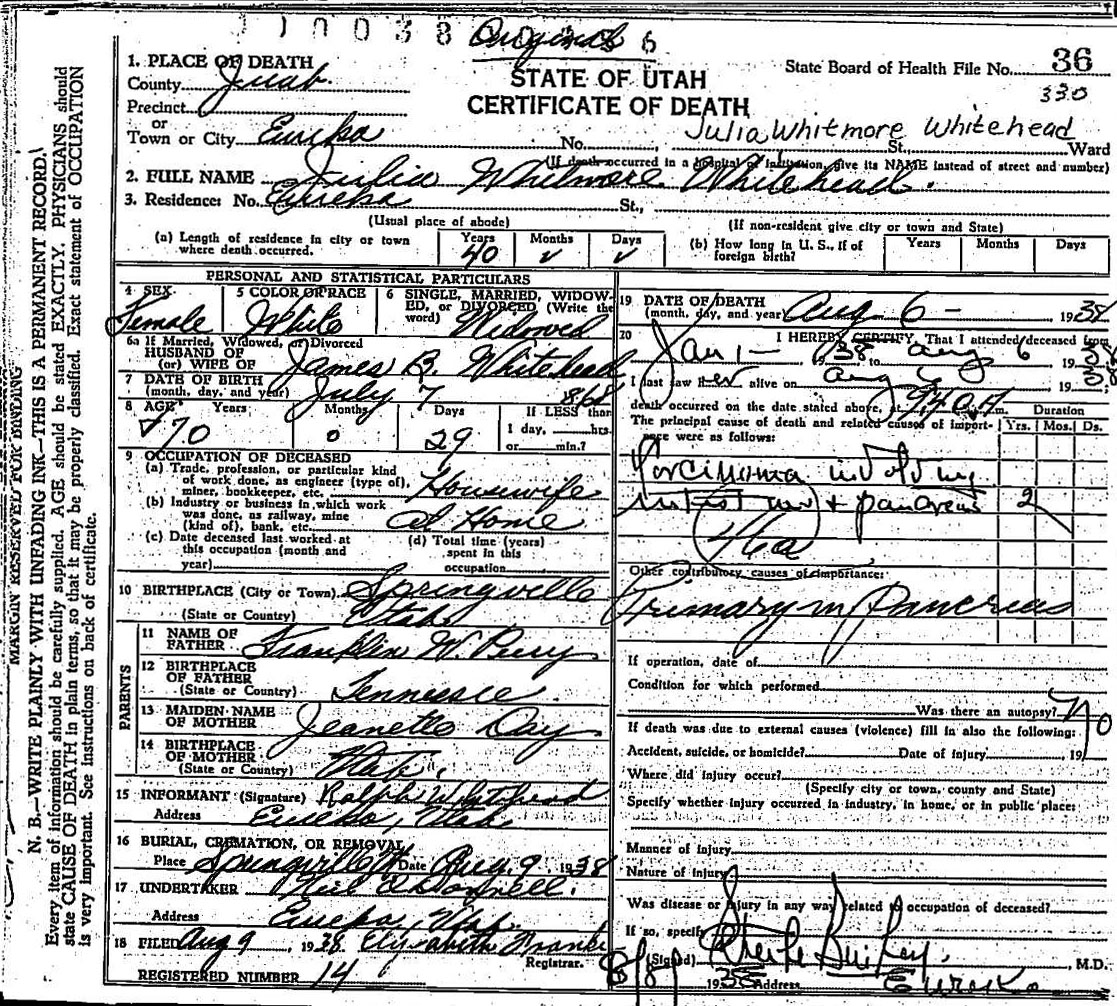 Original
1. PLACE OF DEATH
County Juab
Precinct
or
Town or City Eureka
STATE OF UTAH
CERTIFICATE OF DEATH
State Board of Health File No. 36
330
Julia Whitmore Whitehead
No. St. Ward
(If death occurred in a hospital or institution, give its NAME instead of street and number)
2. FULL NAME Julia Whitmore Whitehead.
3. Residence: No. Eureka St.,
(Usual place of abode) (If non-resident give city or town and State)
(a) Length of residence in city or town where death occurred. Years 40 Months Days
(b) How long in U. S., if of foreign birth? Years Months Days
PERSONAL AND STATISTICAL PARTICULARS
4 SEX Female
5 COLOR OR RACE White
6 SINGLE, MARRIED, WIDOWED, or DIVORCED (Write the word) Widowed
6a If Married, Widowed, or Divorced
HUSBAND OF
(or) WIFE OF James B. Whitehead
7 DATE OF BIRTH
(month, day, and year) July 7 868
8 AGE Years 70 Months 0 Days 29
If LESS than 1 day, hrs. or min.?
9 OCCUPATION OF DECEASED
(a) Trade, profession, or particular kind of work done, as engineer (type of), miner, bookkeeper, etc. Housewife
(b) Industry or business in which work was done, as railway, mine (kind of), bank, etc. at Home
(c) Date deceased last worked at this occupation (month and year)
(d) Total time (years) spent in this occupation
10 BIRTHPLACE (City or Town) Springville
(State or Country) Utah
PARENTS
11 NAME OF FATHER Franklin W. Perry
12 BIRTHPLACE OF FATHER
(State or Country) Tennessee
13 MAIDEN NAME OF MOTHER Jeanette Day
14 BIRTHPLACE OF MOTHER
(State or Country) Utah.
15 INFORMANT (Signature) Ralph Whitehead
Address Eureka, Utah
16 BURIAL, CREMATION, OR REMOVAL
Place Springville Date Aug. 9 1938
17 UNDERTAKER
Address Eureka, Utah.
18 FILED Aug 9, 1938 Elizabeth Franke
Registrar.
REGISTERED NUMBER 14
19 DATE OF DEATH
(month, day, and year) Aug 6 - 1938
20 I HEREBY CERTIFY, That I attended deceased from
Jan 1 - 1938 to Aug 6 1938
I last saw her alive on Aug 6 1938
death occurred on the date stated above, at 940 A m.
The principal cause of death and related causes of importance were as follows:
Duration Yrs. Mos. Ds.
Carcinoma involving
+ pancreas 2
46a
Other contributory causes of importance:
Primary in Pancreas
If operation, date of
Condition for which performed
Was there an autopsy? No
If death was due to external causes (violence) fill in also the following:
Accident, suicide, or homicide? Date of injury 19
Where did injury occur?
(Specify city or town, county and State)
Specify whether injury occurred in industry, in home, or in public place:
Manner of injury
Nature of injury
Was disease or injury in any way related to occupation of deceased?
If so, specify
(Signed) M.D.
8/8/ 1938 Address Eureka
MARGIN RESERVED FOR BINDING
N. B.—WRITE PLAINLY WITH UNFADING INK—THIS IS A PERMANENT RECORD.
Every item of information should be carefully supplied. AGE should be stated EXACTLY. PHYSICIANS should
state CAUSE OF DEATH in plain terms, so that it may be properly classified. Exact statement of OCCUPATION
is very important. See instructions on back of certificate.